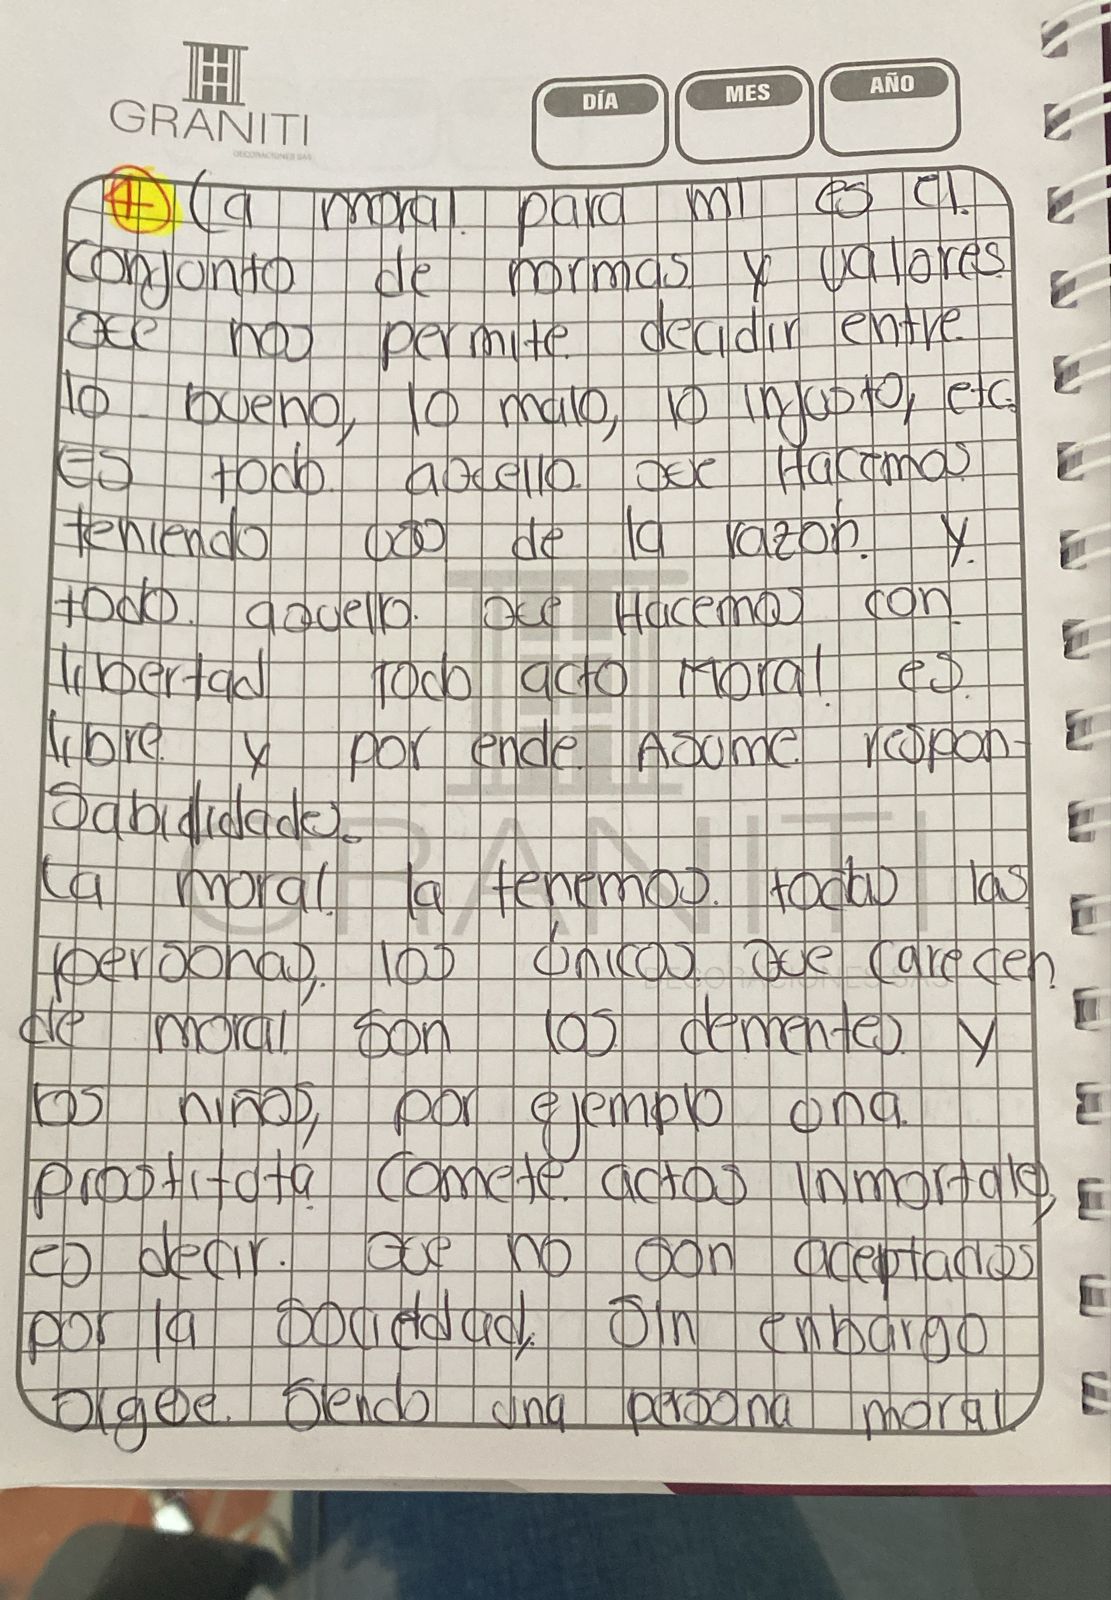 GRANITI
DECORACIONES SAS
DÍA MES AÑO
+ La moral para mi es el
conjunto de normas y valores
que nos permite decidir entre
lo bueno, lo malo, lo injusto, etc.
Es todo aquello que Hacemos
teniendo uso de la razon y
todo aquello que Hacemos con
libertad todo acto moral es
libre y por ende Asume respon-
sabilidades.
La moral la tenemos todas las
personas, los únicos que carecen
de moral son los dementes y
los niños, por ejemplo una
prostituta comete actos inmortales,
es decir que no son aceptados
por la sociedad, sin enbargo
sigue siendo una persona moral
GRANITI
DECORACIONES SAS